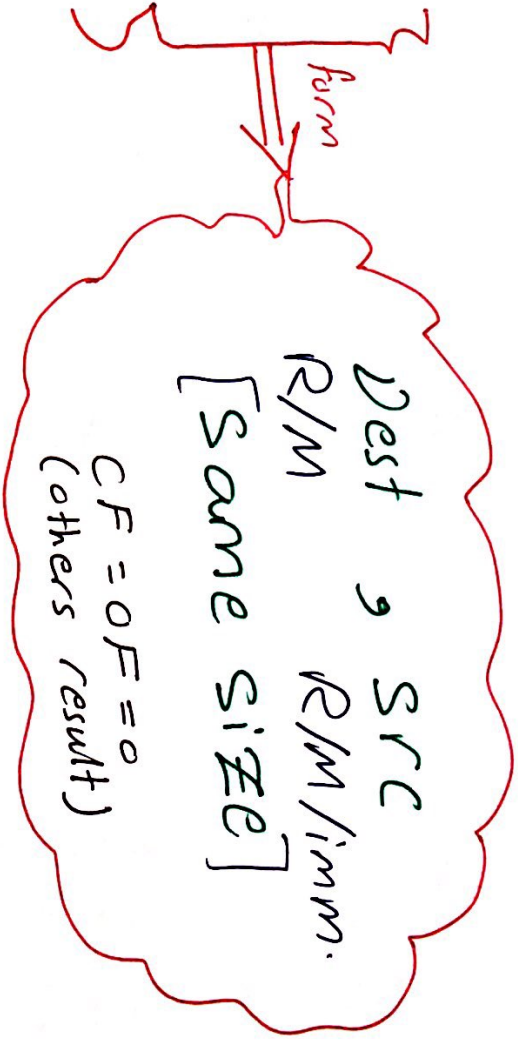 form
Dest , Src
R/M R/M/imm.
[Same size]
CF = OF = 0
(others result)